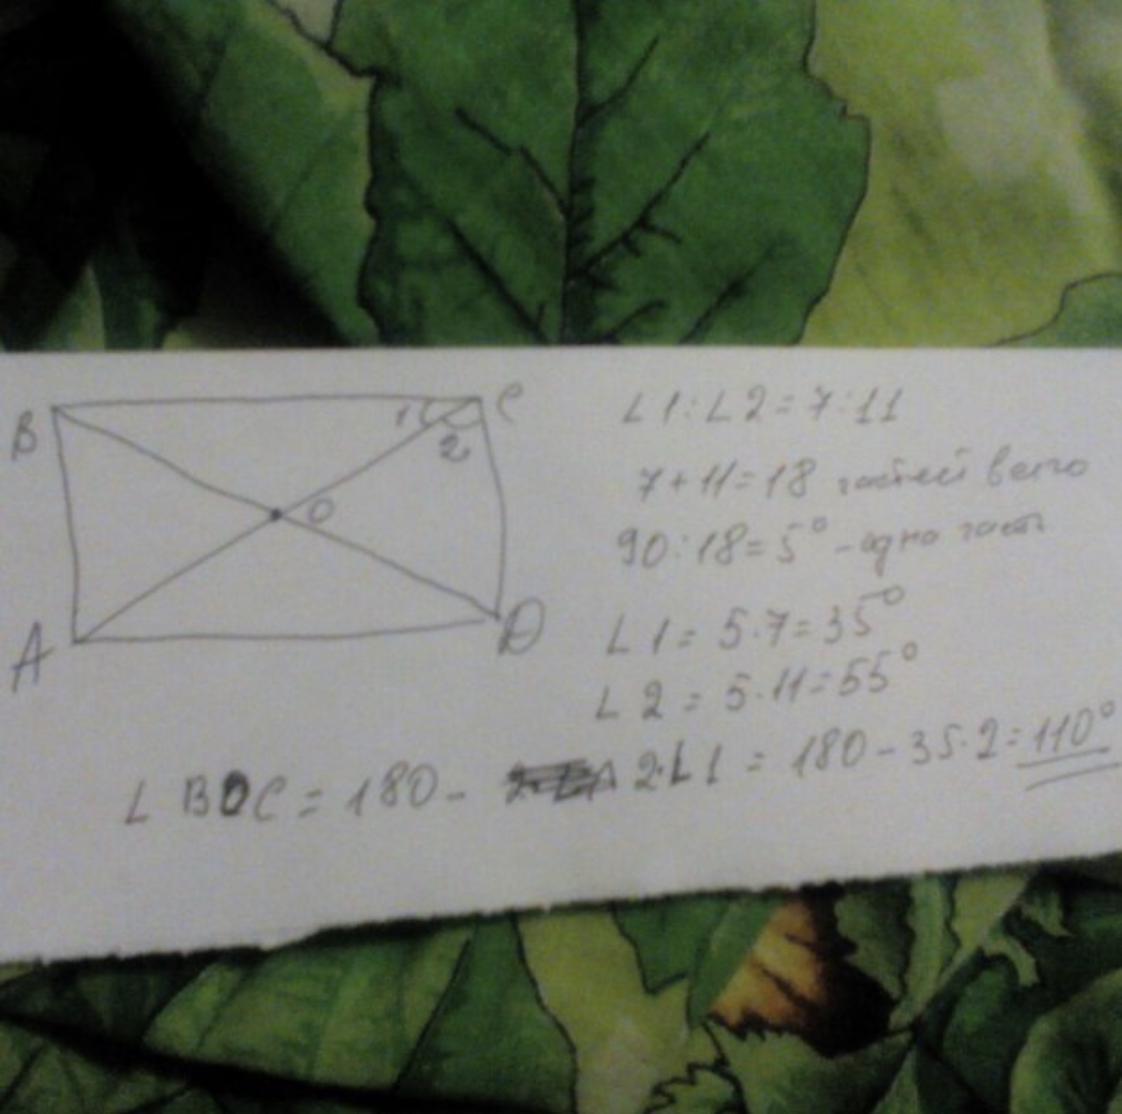 B
1
2
C
O
A
D
∠1:∠2=7:11
7+11=18 частей всего
90:18=5° - одна часть
∠1=5·7=35°
∠2=5·11=55°
∠BOC=180- 2·∠1=180-35·2=110°